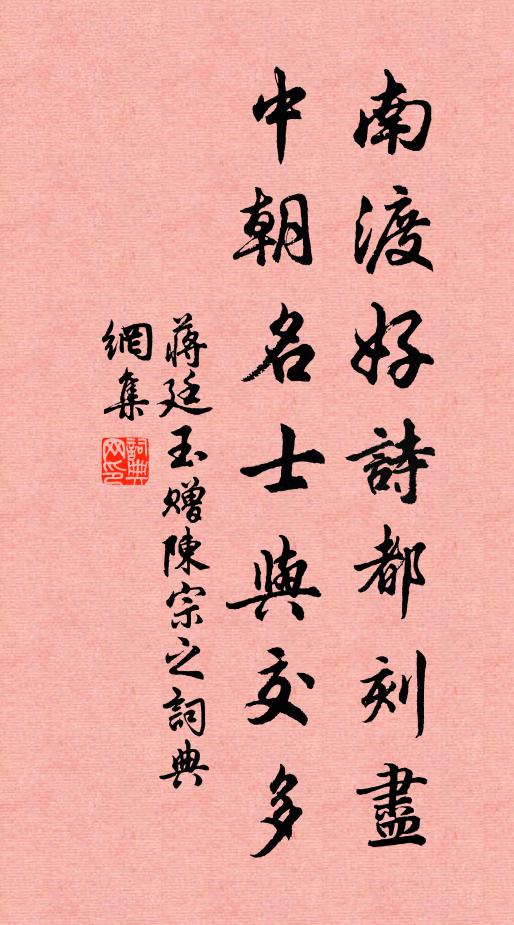 南渡好詩都刻盡
中朝名士與交多
蔣廷玉贈陳宗之詞典
網集
詞典網印